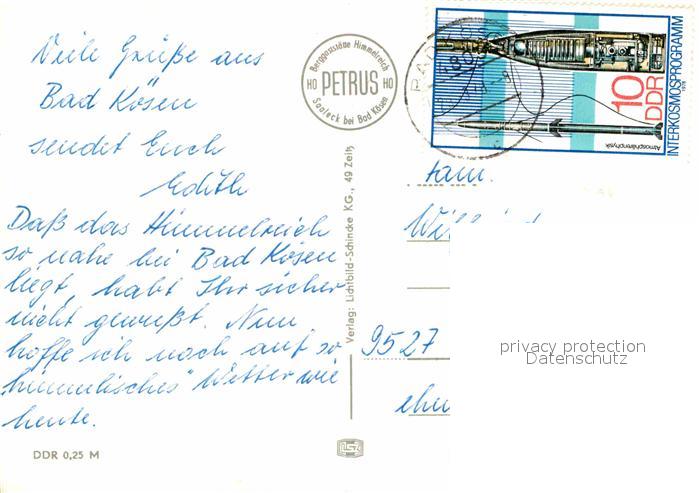 Viele Grüße aus
Bad Kösen
sendet Euch
Edith
Daß das Himmelreich
so nahe bei Bad Kösen
liegt, habt Ihr sicher
nicht gewußt. Nun
hoffe ich noch auf so
„himmlisches" Wetter wie
heute.
DDR 0,25 M
Berggaststätte Himmelreich
HO PETRUS HO
Saaleck bei Bad Kösen
Verlag: Lichtbild-Schincke KG., 49 Zeitz
10
DDR
INTERKOSMOSPROGRAMM
Atmosphärenphysik
1978
Fam.
9527
privacy protection
Datenschutz